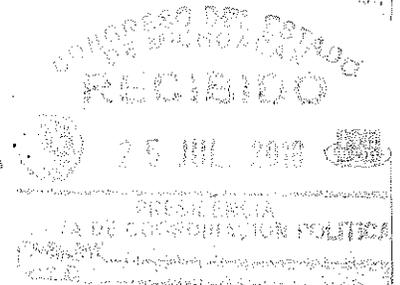 CONGRESO DEL ESTADO
DE MICHOACAN
RECIBIDO
25 JUL. 2018
PRESIDENCIA
/A DE COORDINACION POLITICA